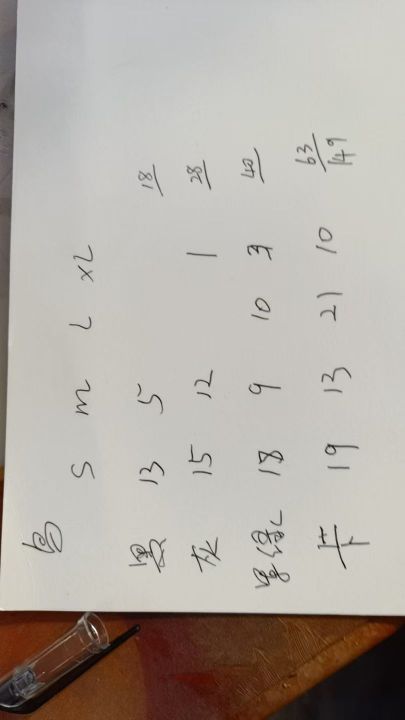 S m L XL
黑 13 5 18
灰 15 12 1 28
绿 18 9 10 3 40
卡 19 13 21 10 63
149